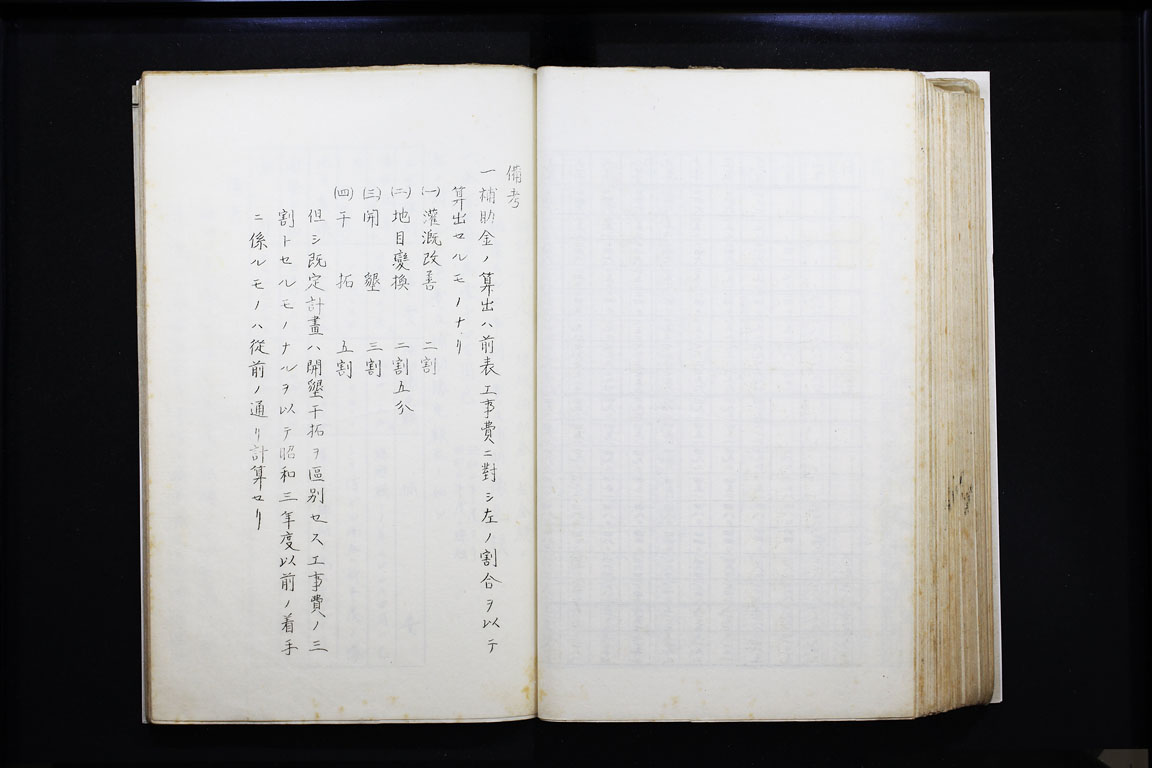 備考
一 補助金ノ算出ハ前表工事費ニ對シ左ノ割合ヲ以テ
算出セルモノナリ
(一) 灌漑改善 二割
(二) 地目變換 二割五分
(三) 開墾 三割
(四) 干拓 五割
但シ既定計畫ハ開墾干拓ヲ區別セス工事費ノ三
割トセルモノナルヲ以テ昭和三年度以前ノ着手
ニ係ルモノハ從前ノ通リ計算セリ